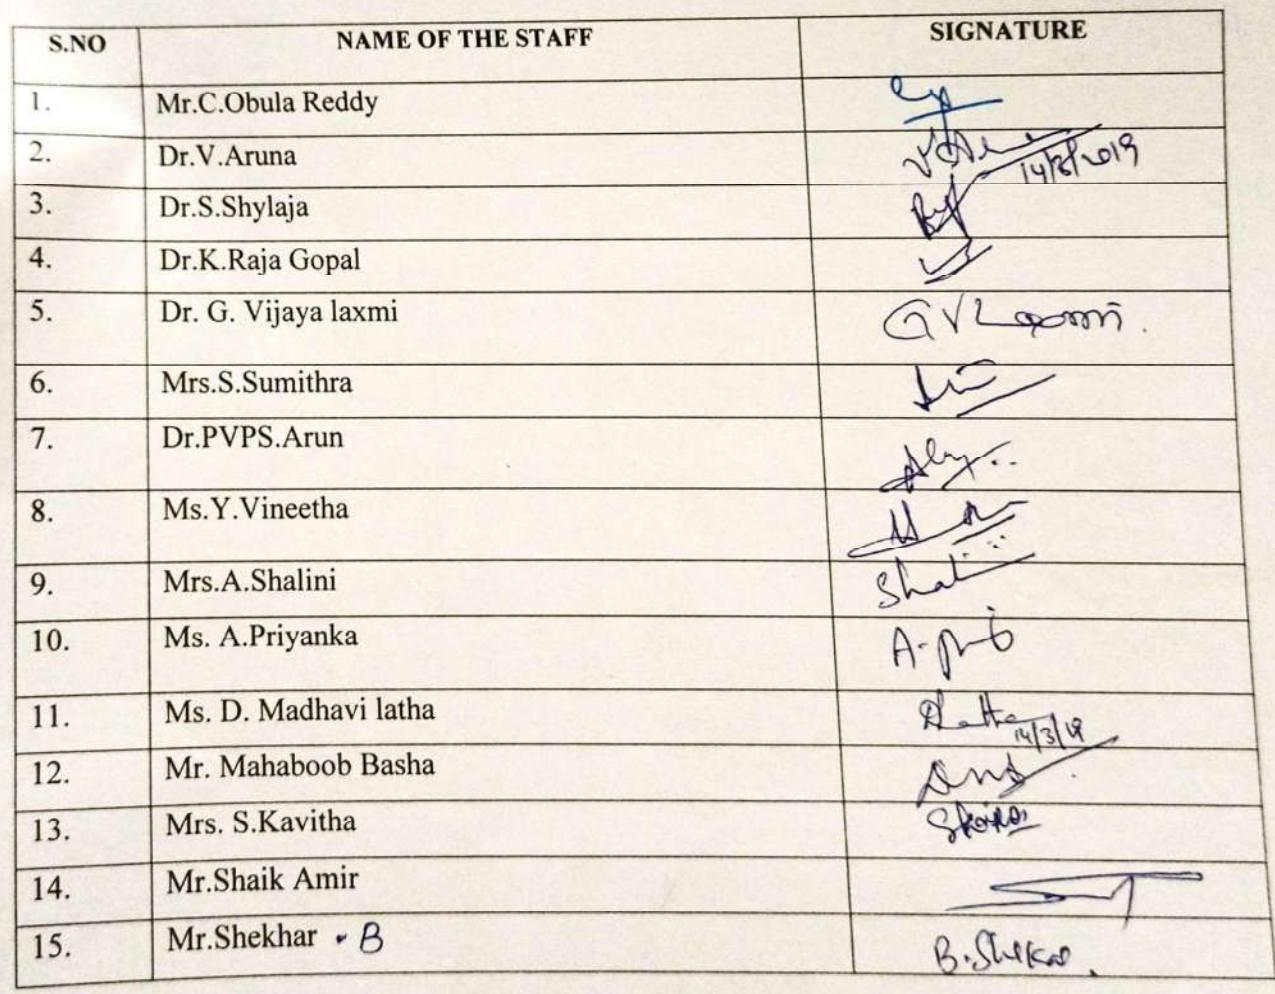 S.NO NAME OF THE STAFF SIGNATURE
1. Mr.C.Obula Reddy
2. Dr.V.Aruna 14/3/2019
3. Dr.S.Shylaja
4. Dr.K.Raja Gopal
5. Dr. G. Vijaya laxmi GVLaxmi.
6. Mrs.S.Sumithra
7. Dr.PVPS.Arun
8. Ms.Y.Vineetha
9. Mrs.A.Shalini Shalini
10. Ms. A.Priyanka
11. Ms. D. Madhavi latha 14/3/19
12. Mr. Mahaboob Basha
13. Mrs. S.Kavitha
14. Mr.Shaik Amir
15. Mr.Shekhar . B B.Shekar.